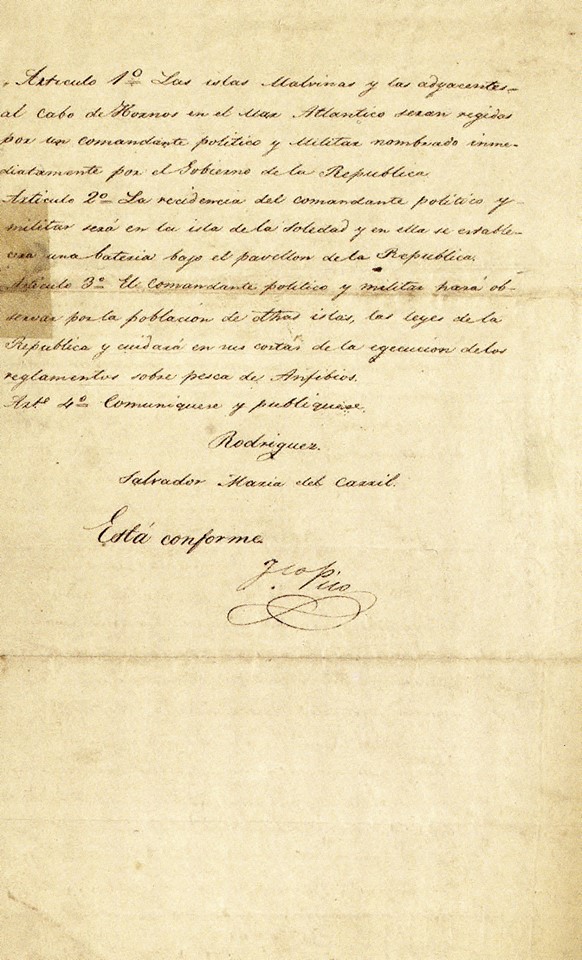 Articulo 1º Las islas Malvinas y las adyacentes
al Cabo de Hornos en el Mar Atlantico seran regidas
por un comandante politico y Militar nombrado inme-
diatamente por el Gobierno de la Republica
Articulo 2º La recidencia del comandante politico y
militar será en la isla de la Soledad y en ella se estable-
cera una bateria bajo el pavellon de la Republica.
Articulo 3º El Comandante politico y militar hará ob-
servar por la poblacion de dthas islas, las leyes de la
Republica y cuidará en sus costas de la egecucion de los
reglamentos sobre pesca de Anfibios.
Artº 4º Comuniquese y publiquese.
Rodriguez.
Salvador Maria del Carril.
Está conforme
Pico